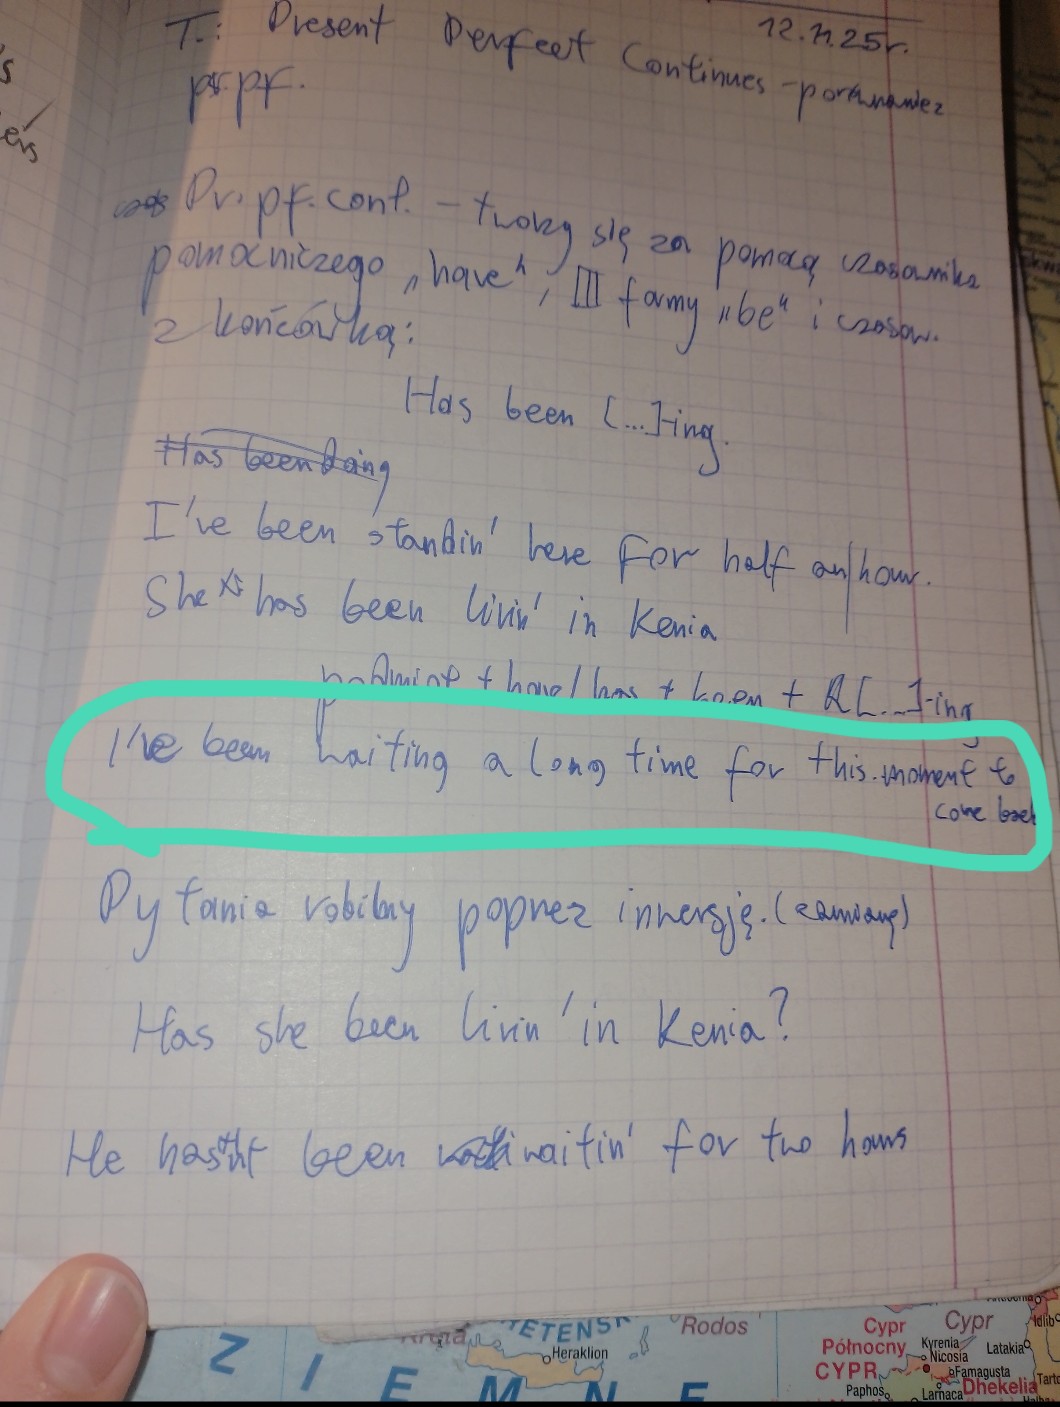 s
ers
12.11.25r.
T.: Present Perfect Continues - porównanie z
pr.pf.
Pr.pf.cont. - tworzy się za pomocą czasownika
pomocniczego „have", III formy „be" i czasow.
z końcówką:
Has been [...]-ing.
Has been doing
I've been standin' here for half an/hour.
She has been livin' in Kenia
podmiot + have/has + been + R[...]-ing
I've been waiting a long time for this moment to
come back
Pytania robimy poprzez inwersję. (zamianę)
Has she been livin' in Kenia?
He hasn't been waitin' for two hours
Z I E M N E
Heraklion
Rodos
Cypr
Północny
CYPR
Cypr
Kyrenia
Nicosia
Famagusta
Latakia
Idlib
Paphos
Larnaca
Dhekelia
Tarto